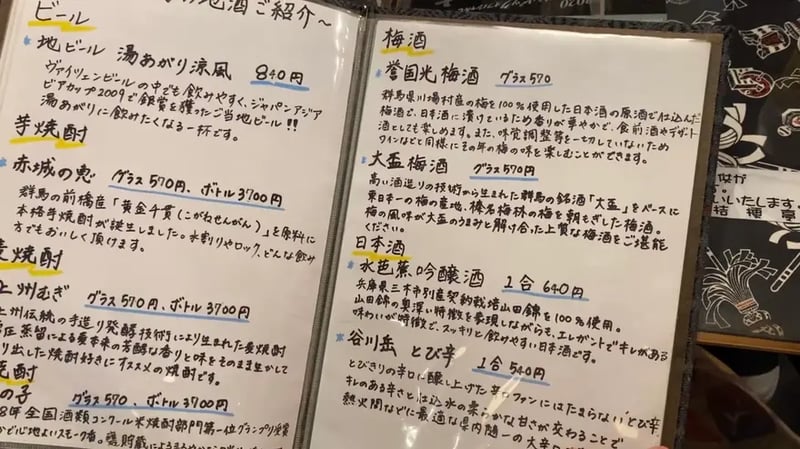 の地酒ご紹介～
ビール
地ビール 湯あがり涼風 840円
ヴァイツェンビールの中でも飲みやすく、ジャパンアジア
ビアカップ2009で銀賞を獲ったご当地ビール!!
湯あがりに飲みたくなる一杯です。
芋焼酎
赤城の恵 グラス570円、ボトル3700円
群馬の前橋産「黄金千貫(こがねせんがん)」を原料に
本格芋焼酎が誕生しました。水割りやロック、どんな飲み
方でもおいしく頂けます。
麦焼酎
上州むぎ グラス570円、ボトル3700円
州伝統の手造り発酵技術により生まれた麦焼酎
圧蒸留による麦本来の芳醇な香りと味をそのまま生かして
り出した焼酎好きにオススメの焼酎です。
焼酎
の子 グラス570、ボトル3700円
8年全国酒類コンクール米焼酎部門第一位グランプリ受賞
梅酒
誉国光梅酒 グラス570
群馬県川場村産の梅を100%使用した日本酒の原酒で仕込んだ
梅酒で、日本酒に漬けているため香りが華やかで、食前酒やデザート
酒としても楽しめます。また、味覚調整等を一切していないため
ワインなどと同様にその年の梅の味を楽しむことができます。
大盃梅酒 グラス570円
高い酒造りの技術から生まれた群馬の銘酒「大盃」をベースに
東日本一の梅の産地、榛名梅林の梅を朝もぎした梅酒。
梅の風味が大盃のうまみと解け合った上質な梅酒をご堪能
ください。
日本酒
水芭蕉吟醸酒 1合640円
兵庫県三木市別産契約栽培山田錦を100%使用。
山田錦の奥深い特徴を表現しながらも、エレガントでキレがある
味わいが特徴で、スッキリと飲みやすい日本酒です。
谷川岳 とび辛 1合540円
とびきりの辛口に醸し上げた辛ファンにはたまらない"とび辛
キレのある辛さと仕込水の柔らかな甘さが交わることで
熱火間などに最適な県内随一の大辛口
いたします。
桔梗亭